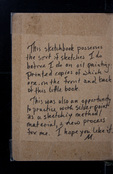 This sketchbook possesses
the sort of sketches I do
before I do an oil painting,
printed copies of which
are in the front and back
of this little book.
This was also an opportunity
to practice with silverpoint
as a sketching method/
material, a new process
for me. I hope you like it
M